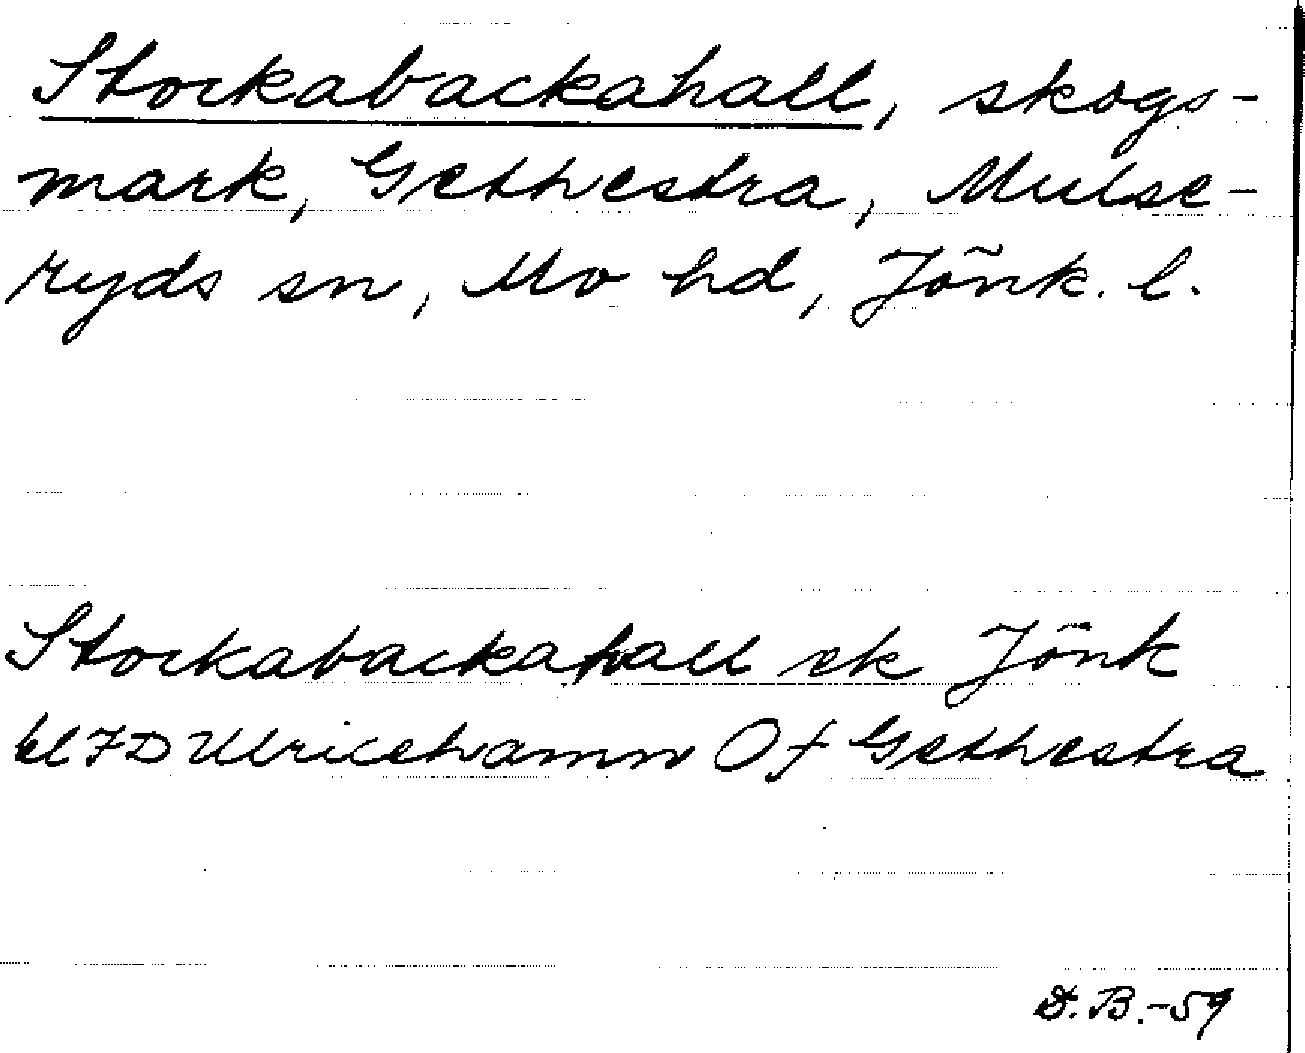 Stockabackahall, skogs-
mark, Gethestra, Mulse-
ryds sn, Mo hd, Jönk. l.
Stockabackahall ek Jönk
Ulricehamn Of Gethestra
D. B. -59